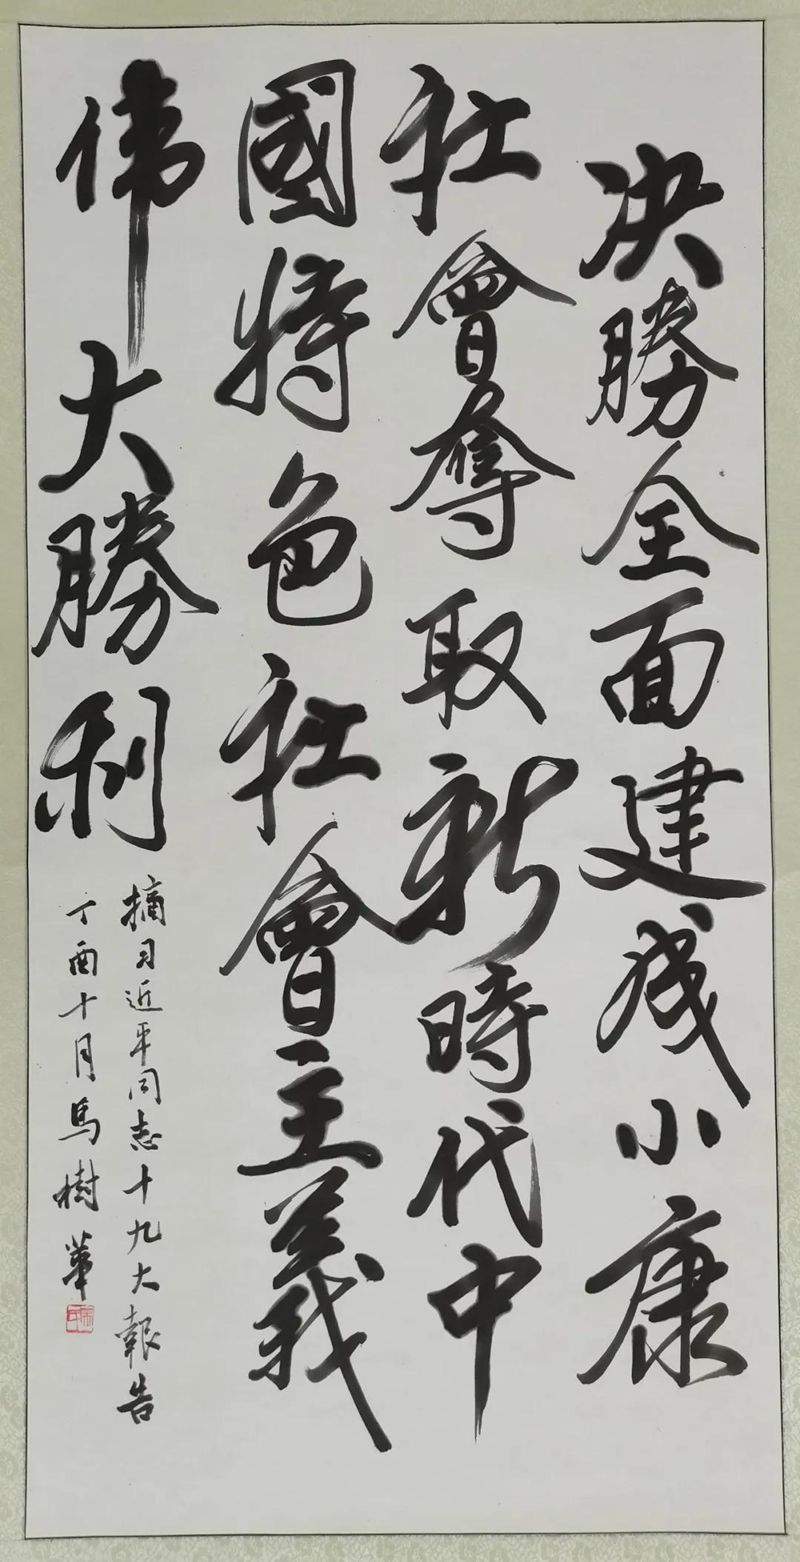 决勝全面建成小康
社會奪取新時代中
國特色社會主義
偉大勝利
摘习近平同志十九大報告
丁酉十月馬樹華